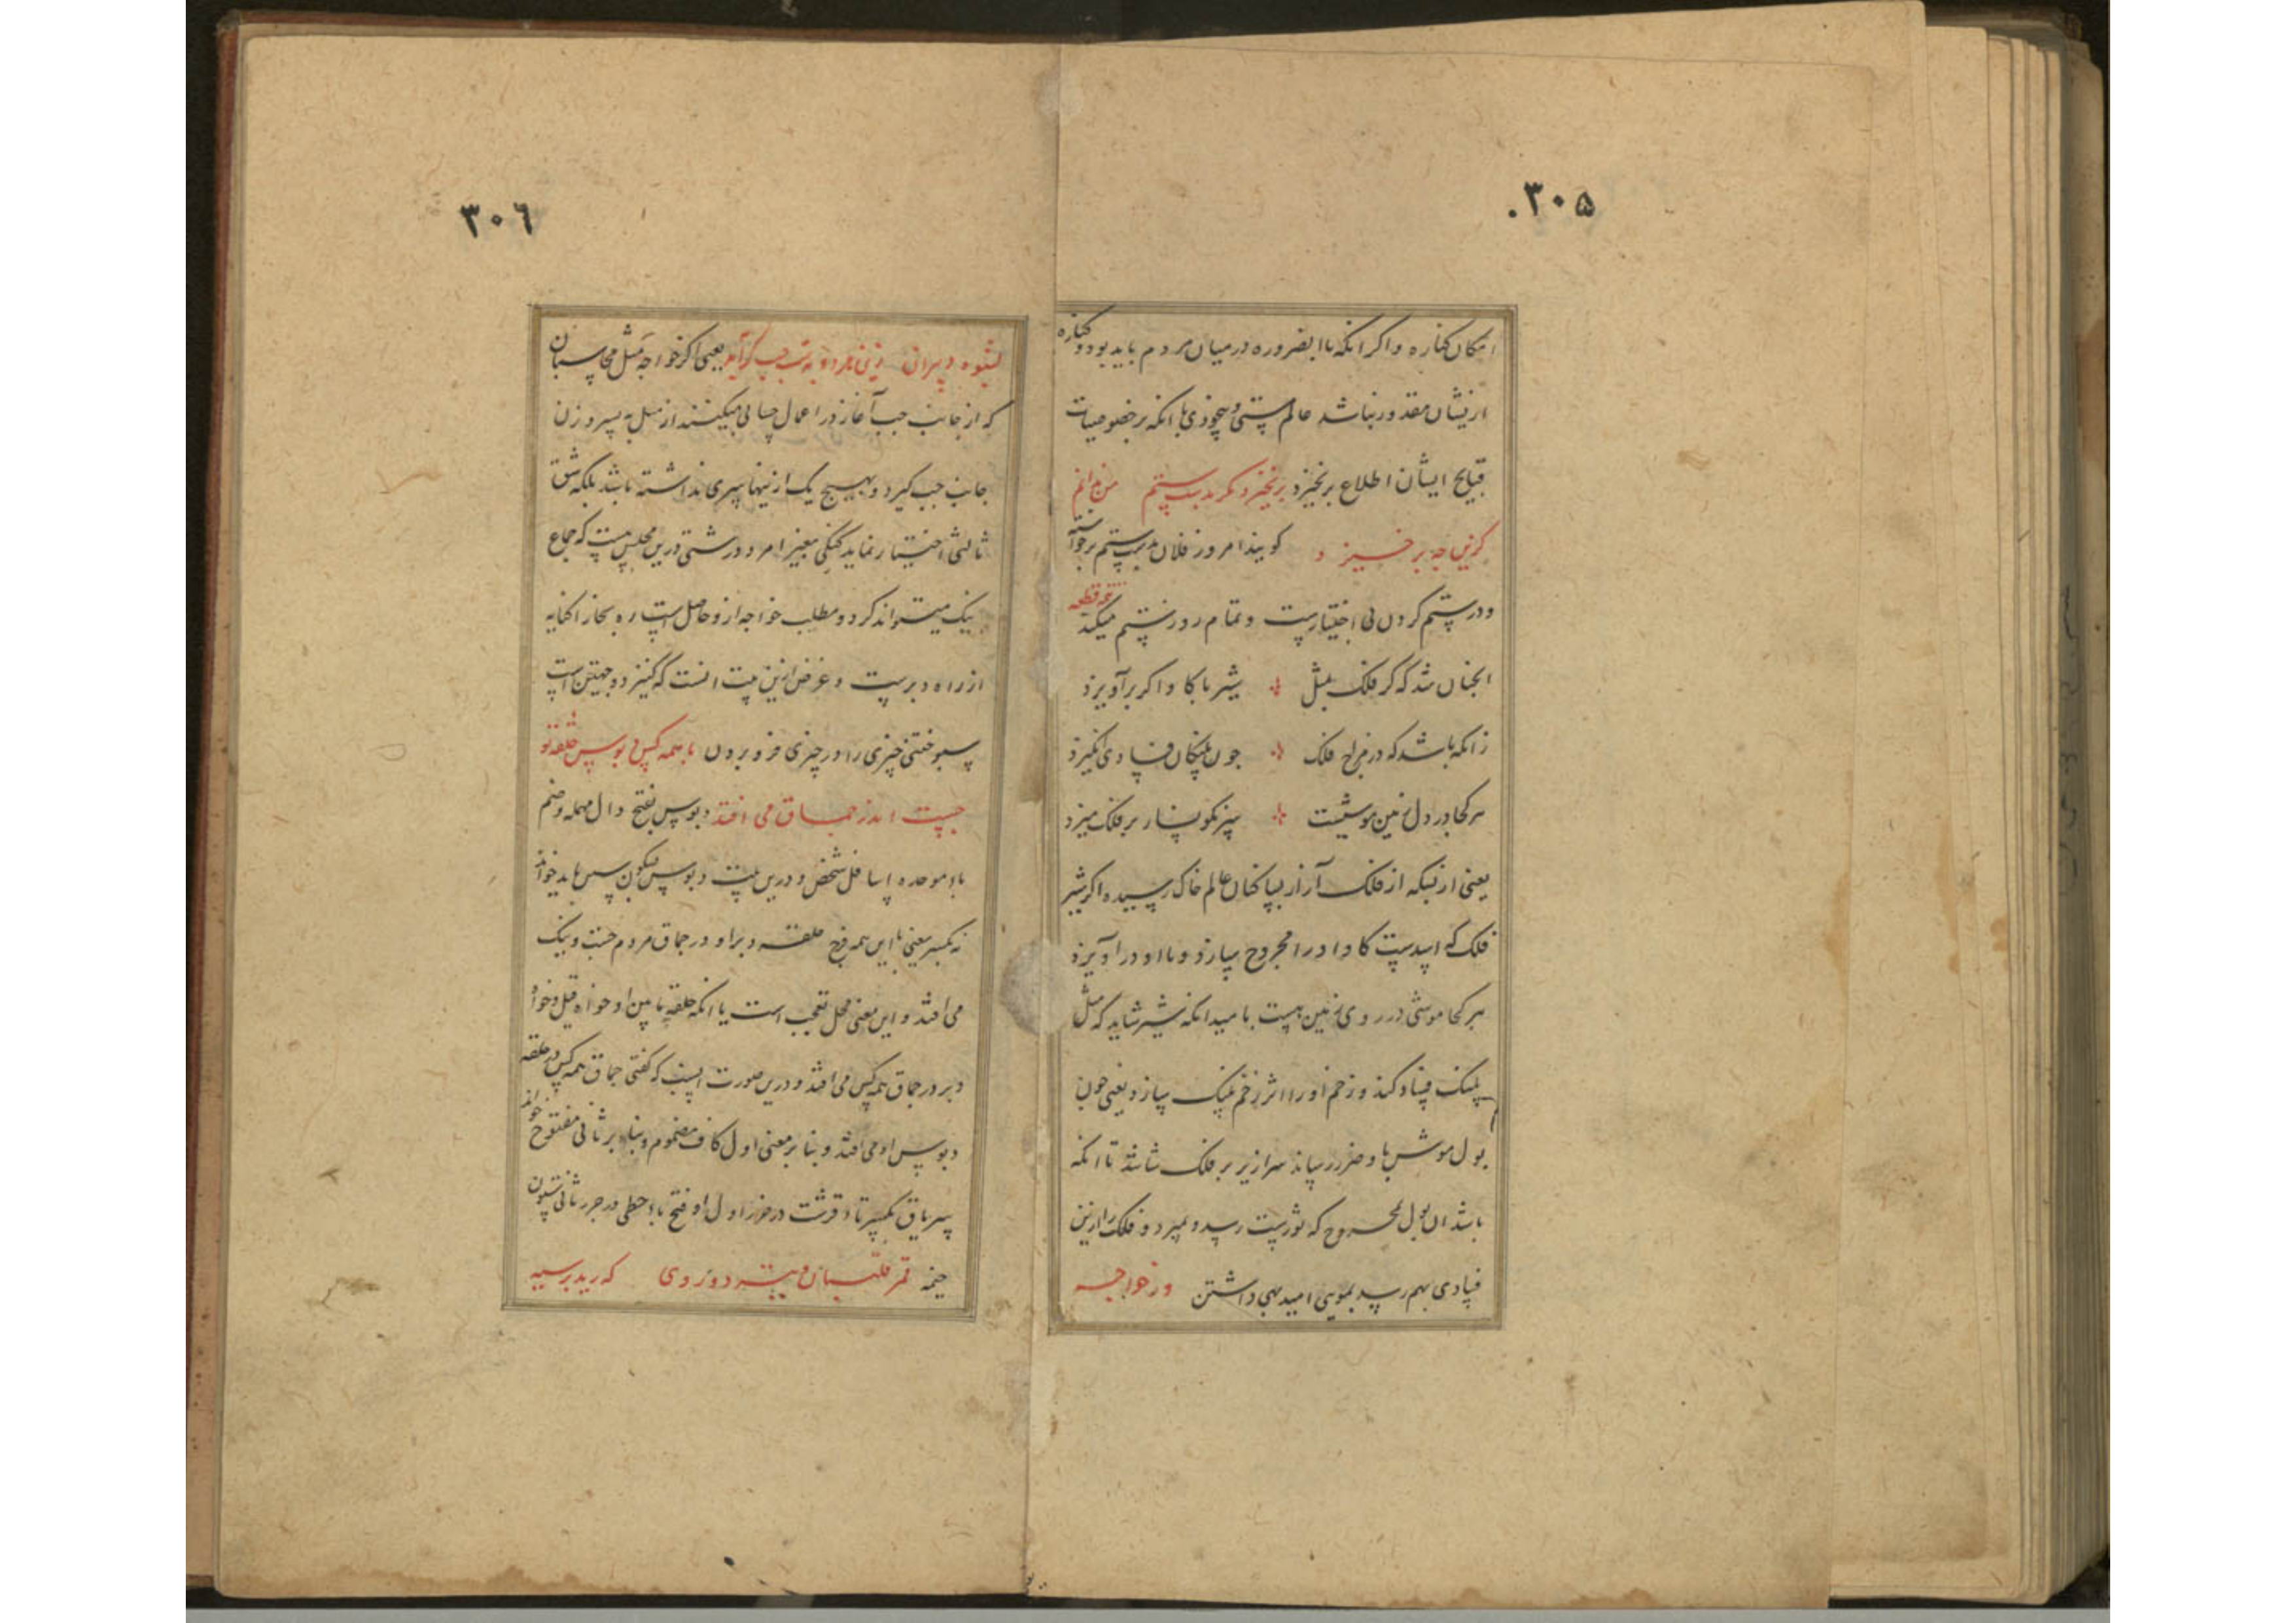 ۳۰۵
امکان کناره واکر انکه باالضروره درمیان مردم باید بود و کناره
ازیشان مقدور نباشد عالم مستی و بیخودی با انکه بر خصوصیات
قبایح ایشان اطلاع برنخیزد برنخیزد مکر بدست ستم من ندانم
کزین چه برخیزد کویند امروز فلان بدست ستم برخواسته
و در ستم کردن بی اختیارست و تمام روز ستم میکند
قطعه
انچنان شد که کر فلک بمثل شیر با کا و اکر برآویزد
زانکه باشد که در مزاج فلک چون پلنکان فسادی انکیزد
هر کجا در دل زمین موشیست سرنکونسار بر فلک میزد
یعنی از بسکه از فلک آزار بساکنان عالم خاک رسیده اکر شیر
فلک که اسدست کا و را مجروح سازد و با او دراویزد
هر کجا موشی در روی زمین هست بامید انکه شیر شاید که مثل
پلنک فساد کند و زخم او را اثر زخم پلنک سازد یعنی چون
بول موش باو ضرر رساند سرازیر بر فلک شاشد تا انکه
باشد ان بول بمجروح که ثورست رسد و بمیرد و فلک را ازین
فسادی بهم رسد بمویی امید بهی داشتن ور خواجه
۳۰۶
بشیوه دبیران زنی مرد و به پشت چپ کرآید یعنی اکر خواجه مثل محاسبان
که از جانب چپ آغاز در اعمال حسابی میکنند از میل به پسر و زن
جانب چپ کیرد و بهیچ یک ازینها سری نداشته باشد بلکه شق
ثالثی اختیار نماید کنکی بغیر امرد درشتی درین مجلس هست که جماع
نیک میتواند کرد و مطلب خواجه ازو حاصل است ره بحاز کنایه
از راه دبرست و غرض ازین بیت انست که کنیز دو جهتین است
سپوختن چیزی را در چیزی فرو بردن با همه کس دبوس حلقه تو
چست اندر جماق می افتد دبوس بفتح دال مهمله و ضم
باء موحده اسافل شخص و درین بیت دبوس بسکون سین باید خواند
نه بکسر یعنی با این همه فرج حلقه دبر او در جماق مردم چست و نیک
می افتد و این معنی محل تعجب است یا انکه حلقه پایین او خواه قبل و خواه
دبر در جماق همه کس می افتد و درین صورت انست که کفتی جماق همه کس در حلقه
دبوس او می افتد و بنا بر معنی اول کاف مضموم و بنا بر ثانی مفتوح خواند
سریاق بکسر تاء قرشت در جزء اول او فتح یاء حطی در جزء ثانی ستون
خیمه قمر قلتبان دزدی که رید بر سبه